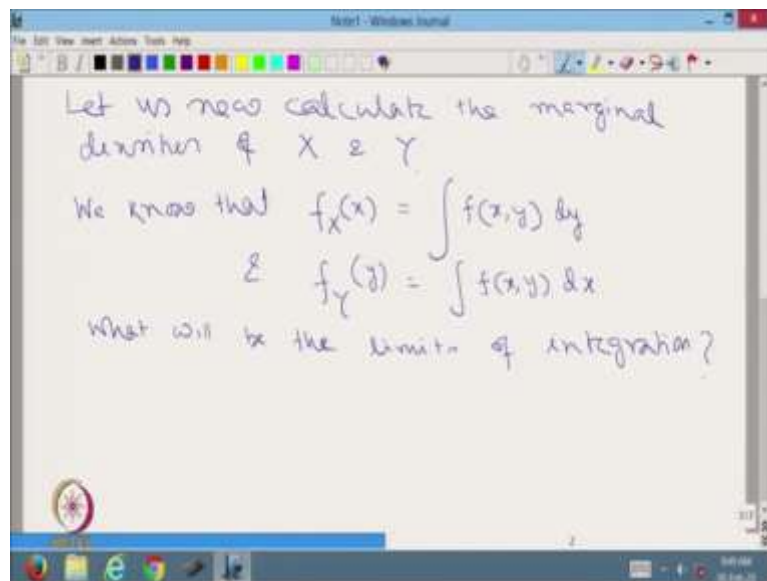 Note1 - Windows Journal
File Edit View Insert Actions Tools Help
Let us now calculate the marginal
densities of X & Y
We know that f_X(x) = ∫ f(x,y) dy
& f_Y(y) = ∫ f(x,y) dx
What will be the limits of integration?
2